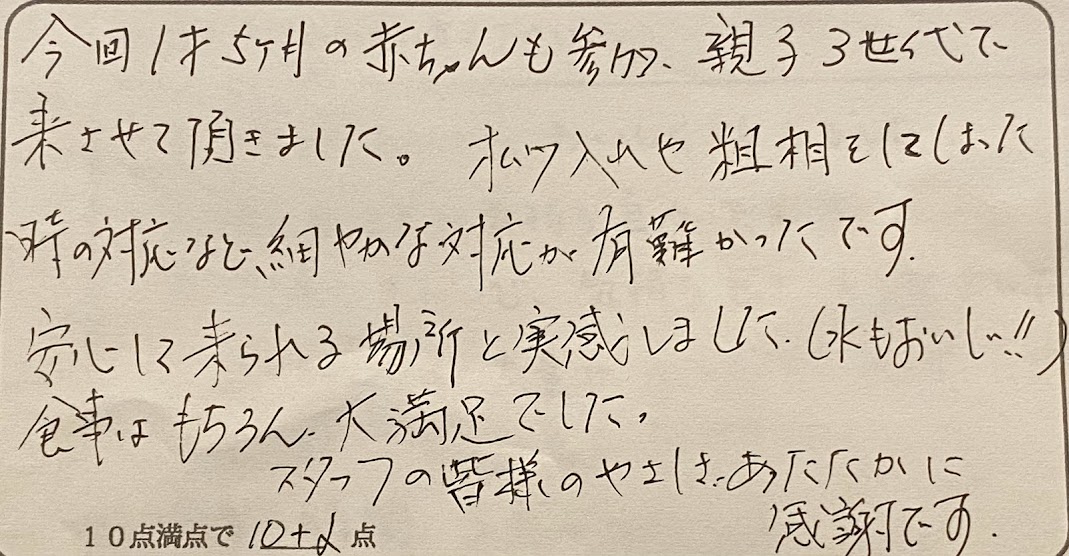 今回1才5ヶ月の赤ちゃんも参加、親子3世代で
来させて頂きました。オムツ入れや粗相をしてしまった
時の対応など、細やかな対応が有難かったです。
安心して来られる場所と実感しました。(水もおいしい!!)
食事はもちろん、大満足でした。
スタッフの皆様のやさしさ、あたたかに
感謝です。
10点満点で 10+α 点